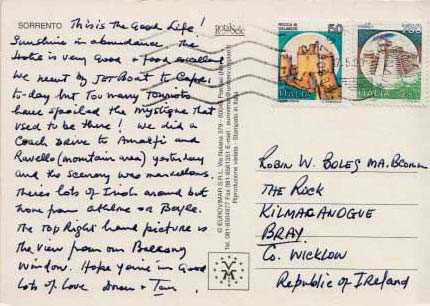 SORRENTO
This is the Good Life!
Sunshine in abundance. The
Hotel is very good & food excellent
We went by Jet Boat to Capri
to-day but Too many Tourists
have spoiled the mystique that
used to be there! We did a
Coach drive to Amalfi and
Ravello (mountain area) yesterday
and the scenery was marvellous.
Theres lots of Irish around but
none from Athlone or Boyle.
The Top Right hand picture is
the view from our Balcony
Window. Hope you're in Good
Lots of Love Doreen & Tom
RotalSele
© EUROVIMAR S.R.L. Via Nolana
Riproduzione vietata - Stampato in Italia
ROCCA DI CALASCIO
50
ITALIA
ITALIA
ROBIN W. BOLES MA. BCOMM
THE ROCK
KILMARANOGUE
BRAY
Co. WICKLOW
Republic of Ireland